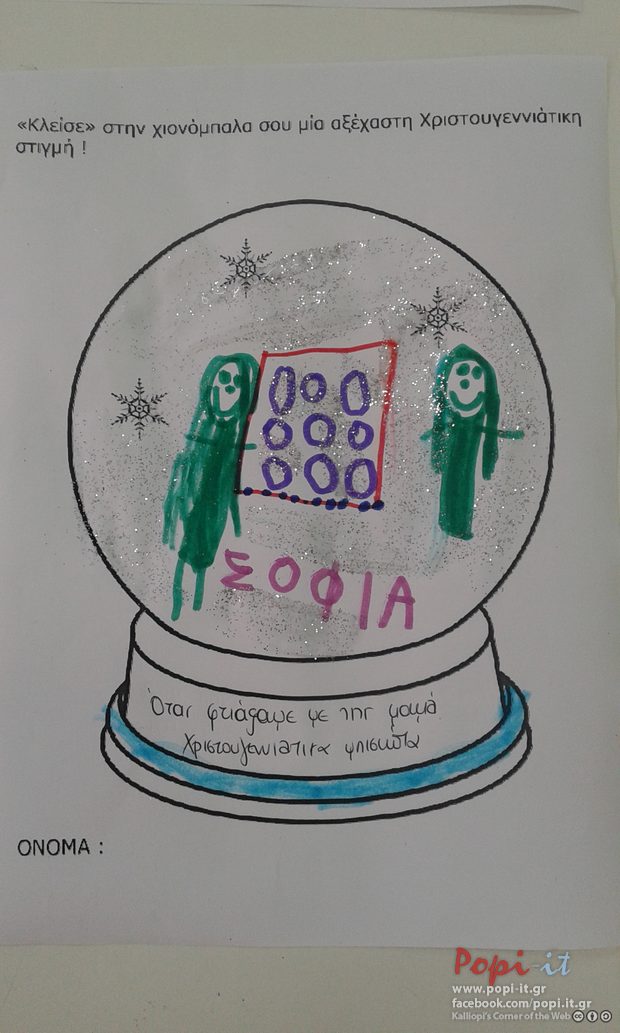 «Κλείσε» στην χιονόμπαλα σου μία αξέχαστη Χριστουγεννιάτικη
στιγμή !
ΣΟΦΙΑ
Όταν φτιάξαμε με την μαμά
Χριστουγεννιάτικα μπισκότα
ΟΝΟΜΑ :
Popi-it
www.popi-it.gr
facebook.com/popi.it.gr
Kalliopi's Corner of the Web